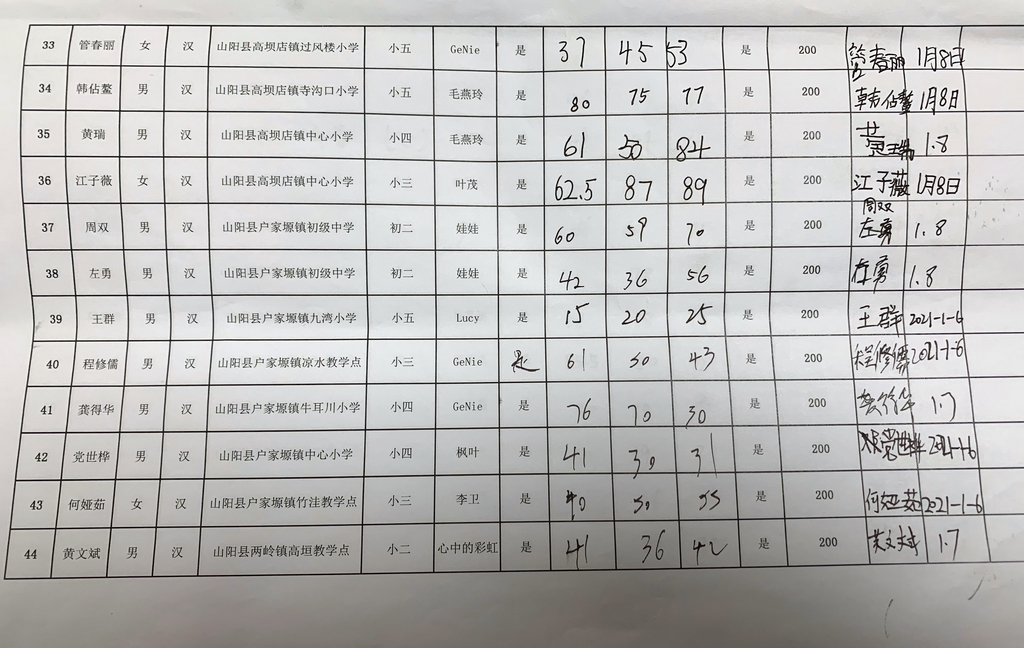 33 管春丽 女 汉 山阳县高坝店镇过风楼小学 小五 GeNie 是 37 45 53 是 200 管春丽 1月8日
34 韩佔鳌 男 汉 山阳县高坝店镇寺沟口小学 小五 毛燕玲 是 80 75 77 是 200 韩佔鳌 1月8日
35 黄瑞 男 汉 山阳县高坝店镇中心小学 小四 毛燕玲 是 61 50 84 是 200 黄瑞 1.8
36 江子薇 女 汉 山阳县高坝店镇中心小学 小三 叶茂 是 62.5 87 89 是 200 江子薇 1月8日
37 周双 男 汉 山阳县户家塬镇初级中学 初二 娃娃 是 60 59 70 是 200 周双 左勇 1.8
38 左勇 男 汉 山阳县户家塬镇初级中学 初二 娃娃 是 42 36 56 是 200 左勇 1.8
39 王群 男 汉 山阳县户家塬镇九湾小学 小五 Lucy 是 15 20 25 是 200 王群 2021-1-6
40 程修儒 男 汉 山阳县户家塬镇凉水教学点 小三 GeNie 是 61 50 43 是 200 程修儒 2021-1-6
41 龚得华 男 汉 山阳县户家塬镇牛耳川小学 小四 GeNie 是 76 70 30 是 200 龚得华 1.7
42 党世桦 男 汉 山阳县户家塬镇中心小学 小四 枫叶 是 41 30 31 是 200 党世桦 2021-1-6
43 何娅茹 女 汉 山阳县户家塬镇竹洼教学点 小三 李卫 是 90 50 55 是 200 何娅茹 2021-1-6
44 黄文斌 男 汉 山阳县两岭镇高垣教学点 小二 心中的彩虹 是 41 36 42 是 200 黄文斌 1.7